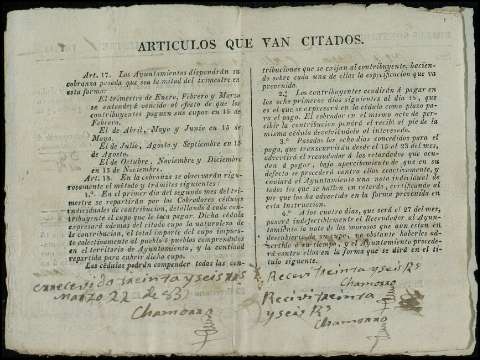 ARTICULOS QUE VAN CITADOS.
Art. 17. Los Ayuntamientos dispondrán su
cobranza pasada que sea la mitad del trimestre en
esta forma:
El trimestre de Enero, Febrero y Marzo
se entenderá vencido al efecto de que los
contribuyentes paguen sus cupos en 15 de
Febrero.
El de Abril, Mayo y Junio en 15 de
Mayo.
El de Julio, Agosto y Septiembre en 15
de Agosto.
El de Octubre, Noviembre y Diciembre
en 15 de Noviembre.
Art. 18. En la cobranza se observarán rigu-
rosamente el método y trámites siguientes:
1.º En el primer dia del segundo mes del tri-
mestre se repartirán por los Cobradores cédulas
individuales de contribucion, detallando á cada con-
tribuyente el cupo que le toca pagar. Dicha cédula
expresará ademas del citado cupo la naturaleza de
la contribucion, el total importe del cupo impues-
to colectivamente al pueblo ó pueblos comprendidos
en el territorio de Ayuntamiento, y la cantidad
repartida para cubrir dicho cupo.
Las cédulas podrán comprender todas las con-
tribuciones que se exijan al contribuyente, hacien-
do sobre cada una de ellas la espresion que va
prevenida.
2.º Los contribuyentes acudirán á pagar en
los ocho primeros dias siguientes al dia 15, que
es el que se expresará en la cédula como plazo pa-
ra el pago. El cobrador en el mismo acto de per-
cibir la contribucion pondrá el recibí al pie de la
misma cédula devolviéndola al interesado.
3.º Pasados los ocho dias concedidos para el
pago, que transcurrirán desde el 15 al 23 del mes,
advertirá el recaudador á los retardados que acu-
dan á pagar, bajo apercibimiento de que en su
defecto se procederá contra ellos executivamente, y
enviará al Ayuntamiento una nota individual de
todos los que se hallen en retardo, certificando al
pie que los ha advertido en la forma prevenida en
esta Instruccion.
4.º A los cuatro dias, que será el 27 del mes,
pasará indefectiblemente el Recaudador al Ayun-
tamiento la nota de los morosos que aun esten en
descubierto de su cupo, no obstante haberlos ad-
vertido con tiempo, y el Ayuntamiento procede-
rá contra ellos en la forma que se dirá en el tí-
tulo siguente.
treinta y seis Rs
Marzo 22 de 83
Chamorro
Recivi treinta y seis Rs
Chamorro
Recivi treinta
y seis Rs
Chamorro